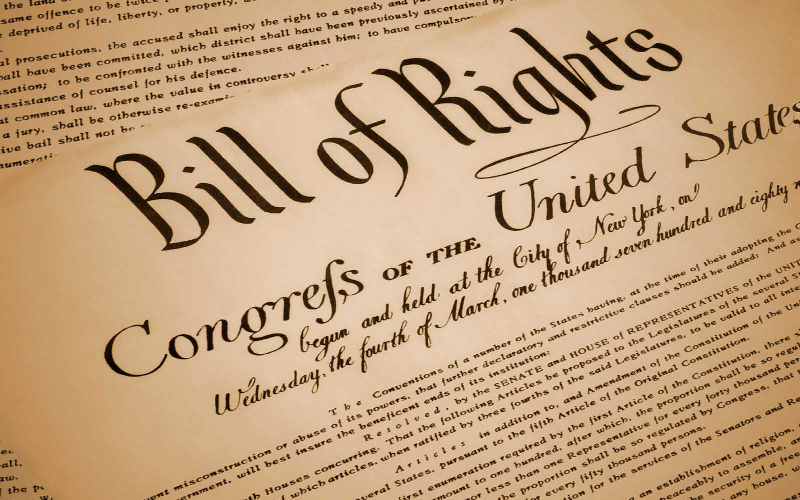 the land or
same offence to be twice
deprived of life, liberty, or property,
al prosecutions, the accused shall enjoy the right to a speedy and
hall have been committed, which district shall have been previously ascertained
sation; to be confronted with the witnesses against him; to have compulsor
assistance of counsel for his defence.
t common law, where the value in controversy
a jury, shall be otherwise re-exami
ive bail shall not be
numerati
Bill of Rights
Congreſs OF THE United States
begun and held at the City of New York, on
Wednesday, the fourth of March, one thousand seven hundred and eighty
The Conventions of a number of the States having, at the time of their adopting the
misconstruction or abuse of its powers, that further declaratory and restrictive clauses should be added; And as
ernment, will best insure the beneficent ends of its institution;
Resolved, by the SENATE and HOUSE of REPRESENTATIVES of the
th Houses concurring. That the following Articles be proposed to the Legislatures of the several
which articles, when ratified by three fourths of the said Legislatures, to be valid to all
Articles in addition to, and Amendment of the Constitution of the
veral States, pursuant to the fifth Article of the Original Constitution.
first enumeration required by the first Article of the Constitution, there
amount to one hundred, after which, the proportion shall be so
or less than one Representative for every forty thousand
shall be so regulated by Congress, that
for every fifty thousand persons.
for the services of the Senators and
an establishment of religion,
ably to assemble, and
the security of a free